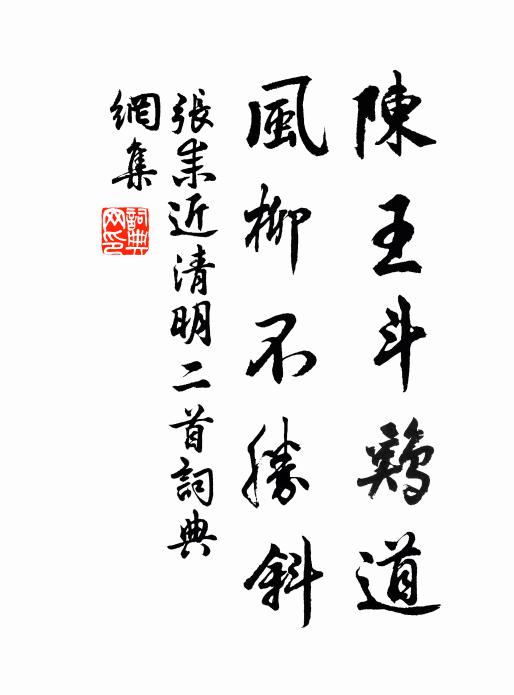 陳王斗鷄道
風柳不勝斜
張耒近清明二首詞典
網集
詞典
网印